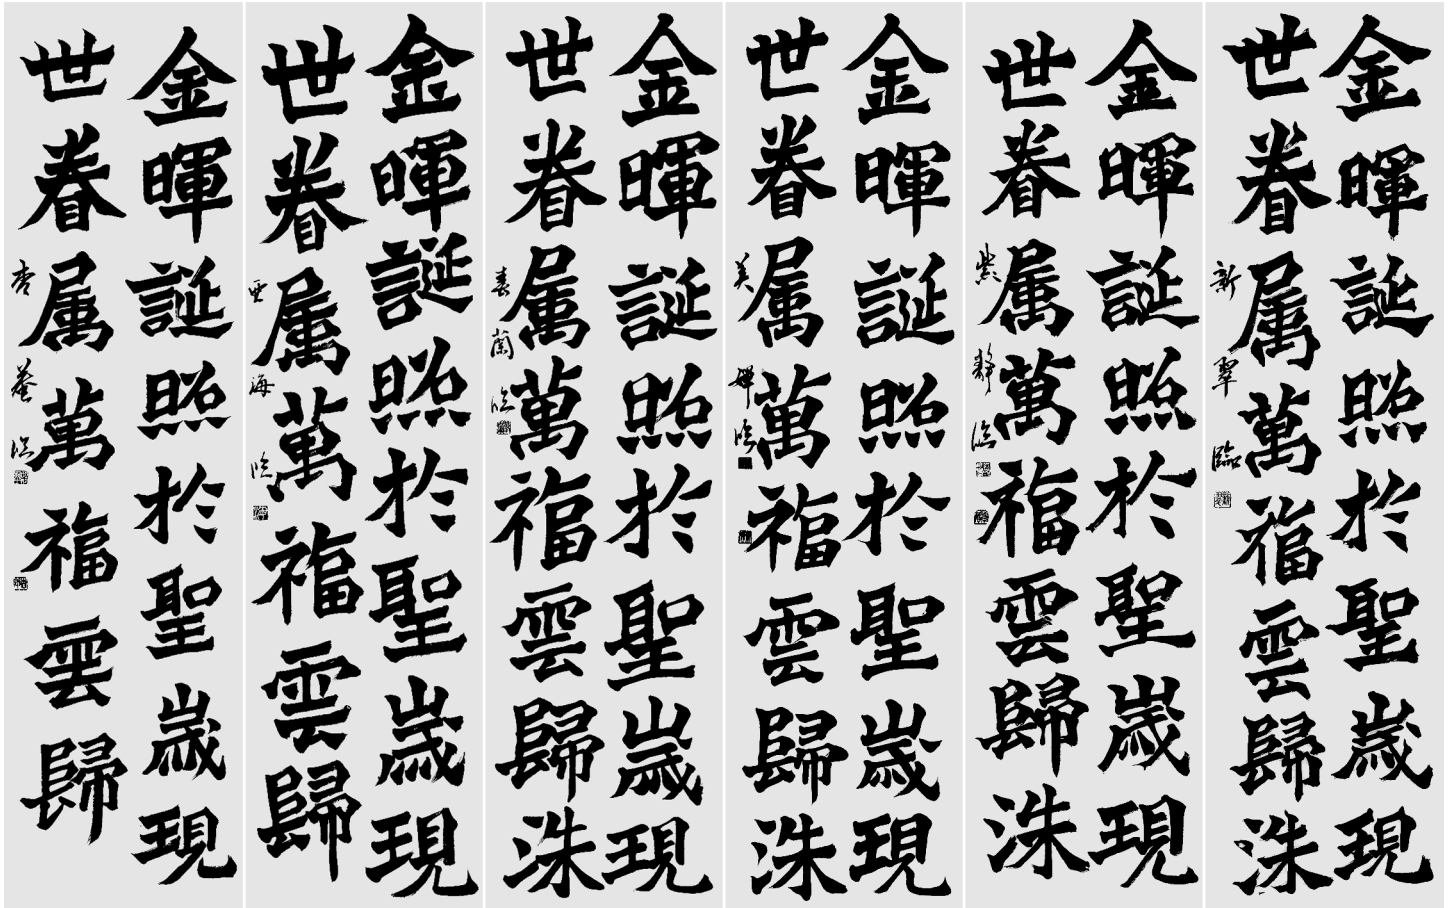 金暉誕照於聖歲現
世眷属萬福雲歸洙
新翠臨
金暉誕照於聖歲現
世眷属萬福雲歸洙
紫靜臨
金暉誕照於聖歲現
世眷属萬福雲歸洙
美臨
金暉誕照於聖歲現
世眷属萬福雲歸洙
春蘭臨
金暉誕照於聖歲現
世眷属萬福雲歸
亜海臨
金暉誕照於聖歲現
世眷属萬福雲歸
杏菴臨